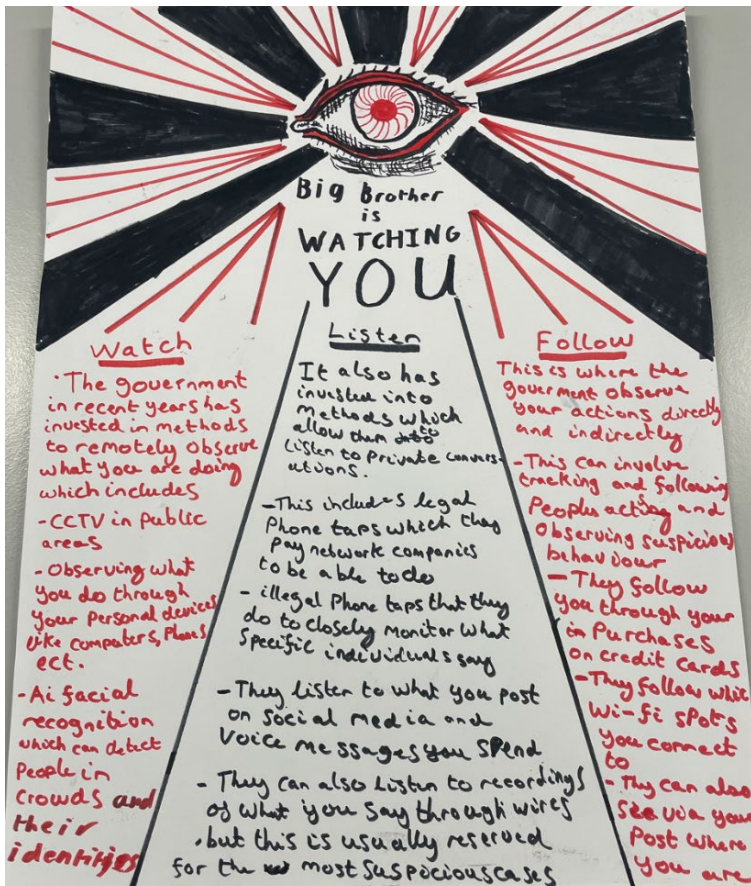 Big Brother
is
WATCHING
YOU
Watch
· The government
in recent years has
invested in methods
to remotely observe
what you are doing
which includes
- CCTV in public
areas
- Observing what
you do through
your personal devices
like computers, Phones
ect.
- Ai facial
recognition
which can detect
People in
crowds and
their
identities
Listen
It also has
invested into
Methods which
allow them into
listen to Private convers-
ations.
- This includes legal
Phone taps which they
Pay network companies
to be able to do
- illegal Phone taps that they
do to closely monitor what
specific individuals say
- They listen to what you post
on social media and
Voice messages you spend
- They can also listen to recordings
of what you say through wires
but this is usually reserved
for the most suspicious cases
Follow
This is where the
goverment observe
your actions directly
and indirectly
- This can involve
tracking and following
Peoples actions and
observing suspicious
behaviour
- They follow
you through your
in Purchases
on credit cards
- They follow what
Wi-fi spots
you connect
to
- They can also
see via your
Post where
you are